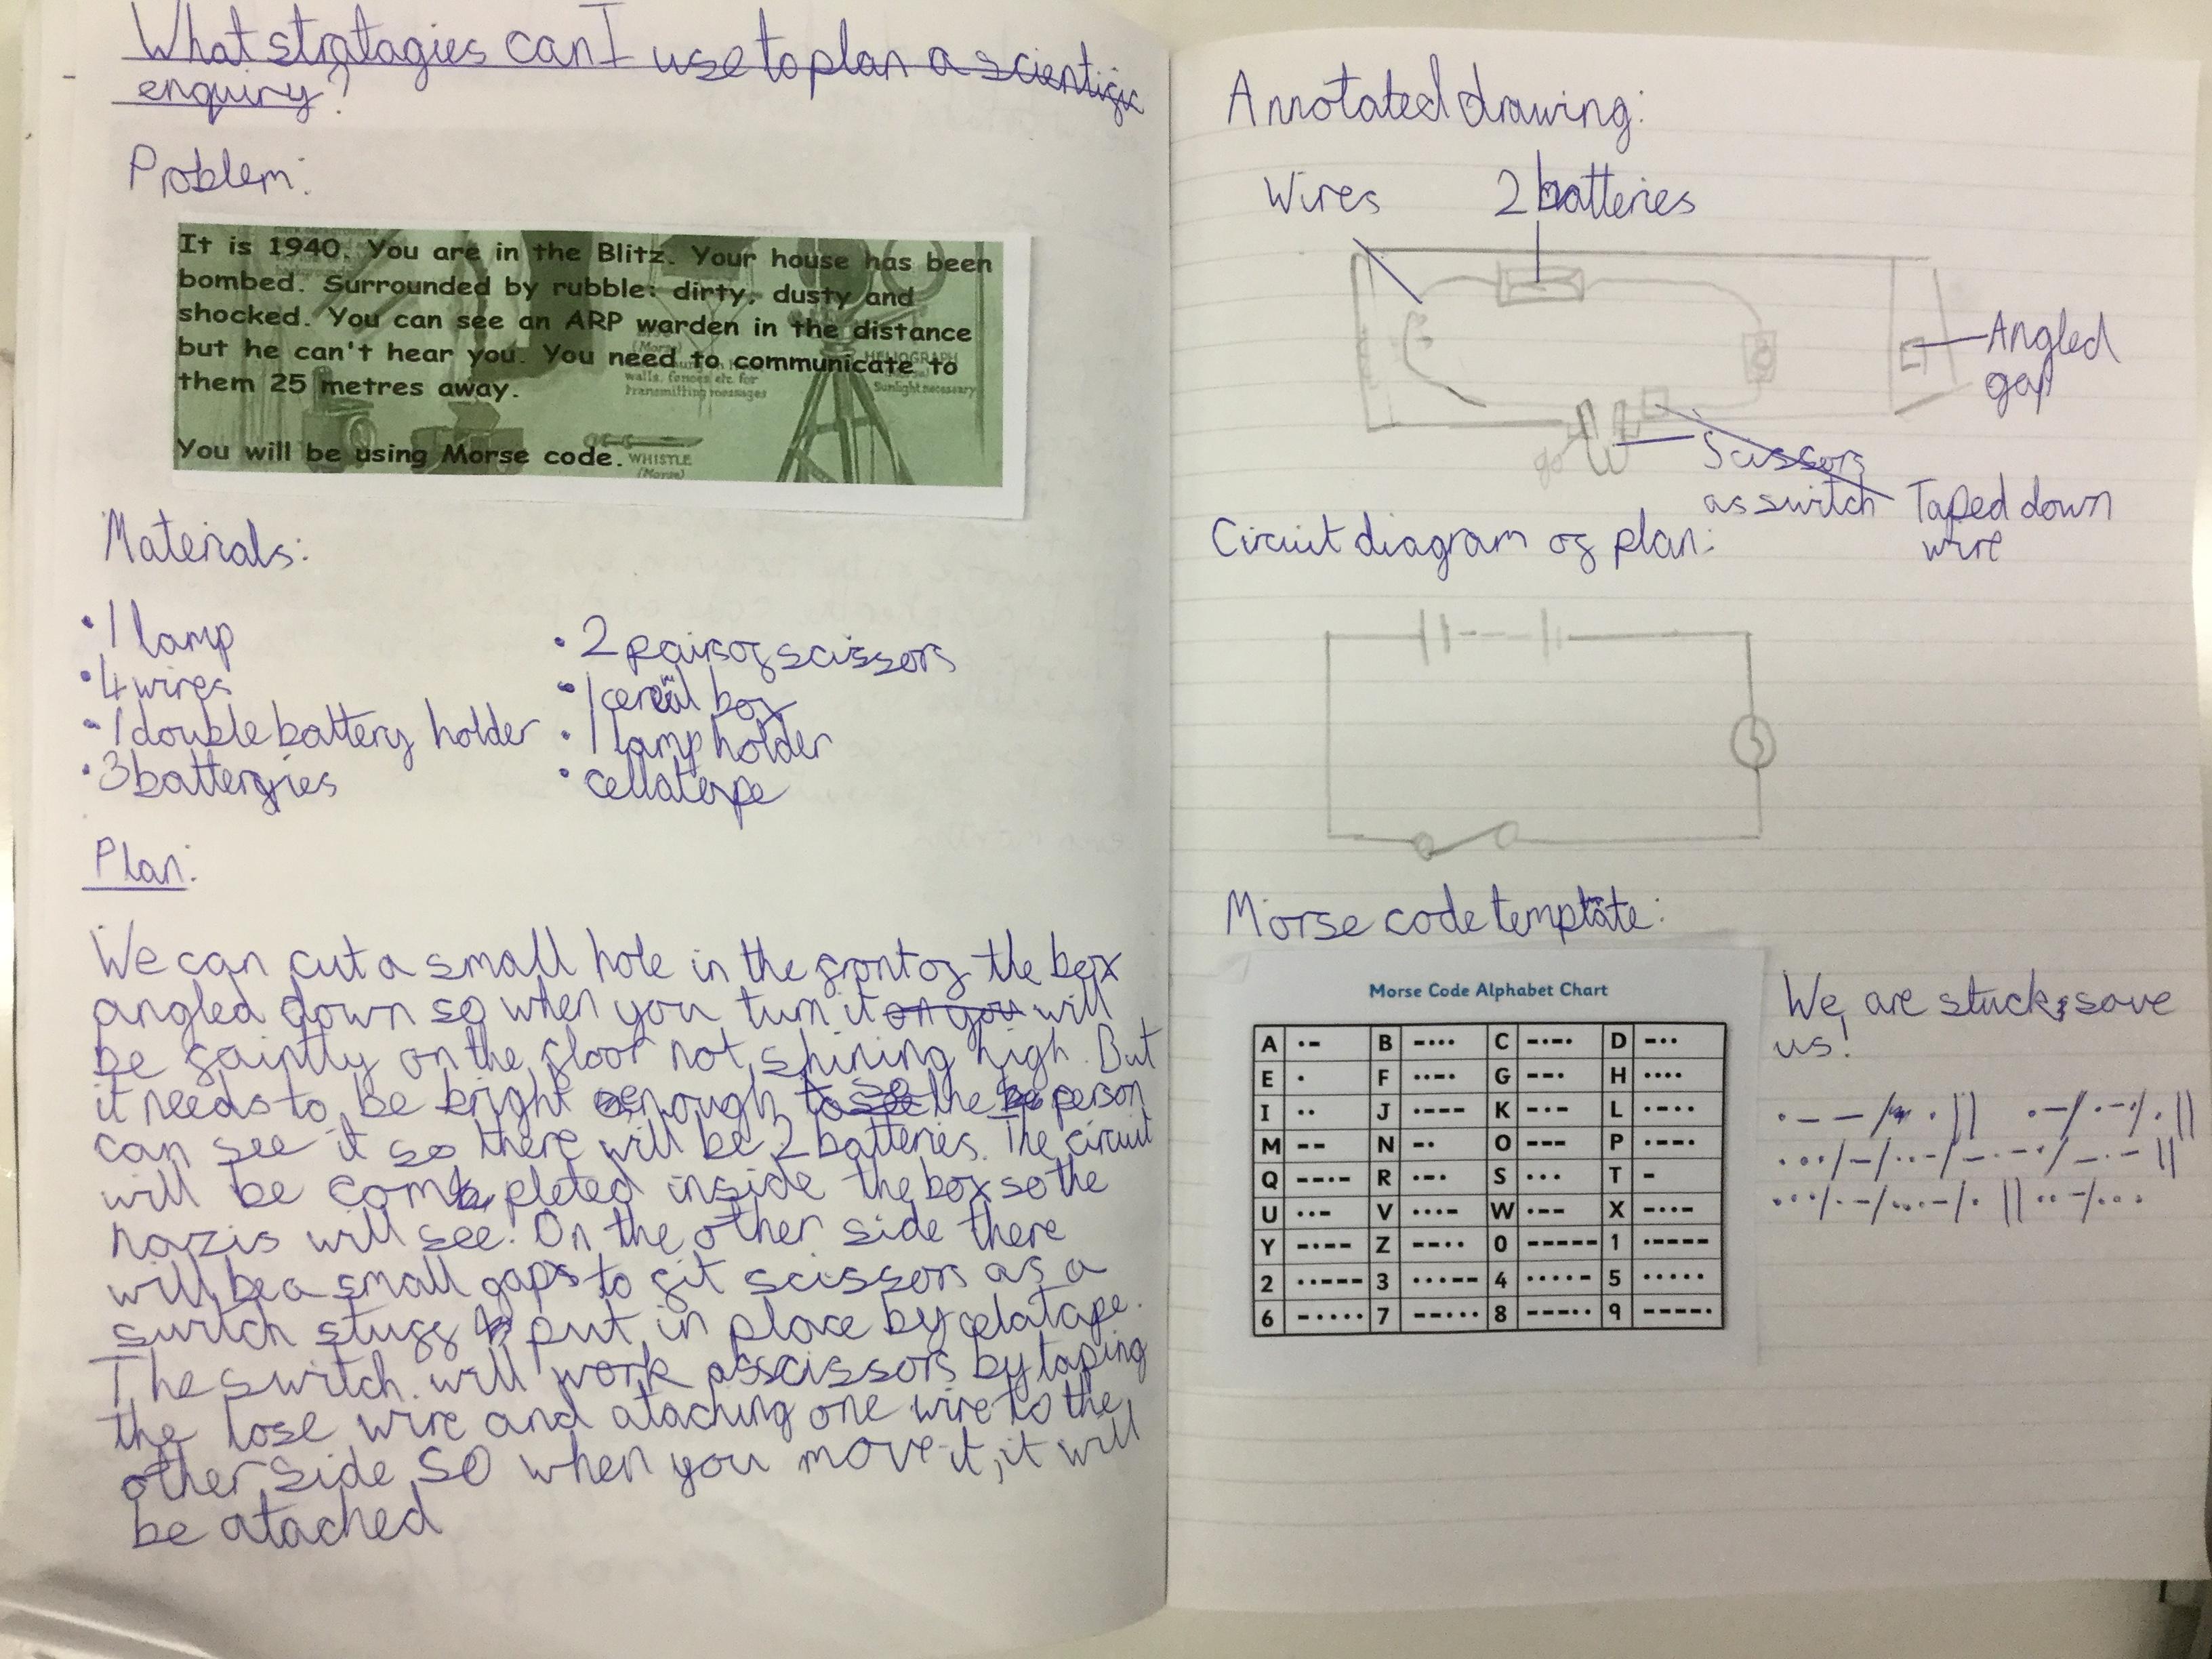 What stratagies can I use to plan a scientific
enquiry?
Problem:
It is 1940. You are in the Blitz. Your house has been
bombed. Surrounded by rubble: dirty, dusty and
shocked. You can see an ARP warden in the distance
but he can't hear you. You need to communicate to
them 25 metres away.
You will be using Morse code.
(Morse)
HELIOGRAPH
walls, fences etc. for
transmitting messages
Sunlight necessary
WHISTLE
(Morse)
Materials:
• 1 lamp
• 4 wires
• 1 double battery holder
• 3 battergies
• 2 pairs of scissors
• 1 cereal box
• 1 lamp holder
• cellatape
Plan:
We can cut a small hole in the front of the box
angled down so when you turn it on you will
be faintly on the floor not shining high. But
it needs to be bright enough to see the person
can see it so there will be 2 batteries. The circuit
will be completed inside the box so the
nazis will see. On the other side there
will be a small gaps to fit scissors as a
switch stuff put in place by celatape.
The switch will work as scissors by taping
the lose wire and ataching one wire to the
other side so when you move it, it will
be atached
Annotated drawing:
Wires
2 batteries
Angled
gap
Scissors
as switch
Taped down
wire
Circuit diagram of plan:
Morse code template:
Morse Code Alphabet Chart
A ·- B -··· C -·-· D -··
E · F ··-· G --· H ····
I ·· J ·--- K -·- L ·-··
M -- N -· O --- P ·--·
Q --·- R ·-· S ··· T -
U ··- V ···- W ·-- X -··-
Y -·-- Z --·· 0 ----- 1 ·----
2 ··--- 3 ···-- 4 ····- 5 ·····
6 -···· 7 --··· 8 ---·· 9 ----·
We are stuck, save
us!
·--/·|| ·-/·-·/·||
···/-/··-/-·-·/-·-||
···/·-/···-/·||··-/···